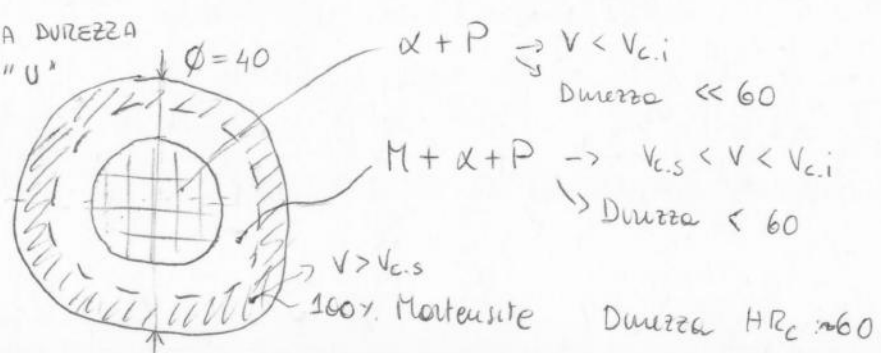 A DUREZZA
"U"
Ø = 40
α + P → V < Vc.i
Durezza << 60
M + α + P → Vc.s < V < Vc.i
Durezza < 60
V > Vc.s
100% Martensite Durezza HRc ≈ 60